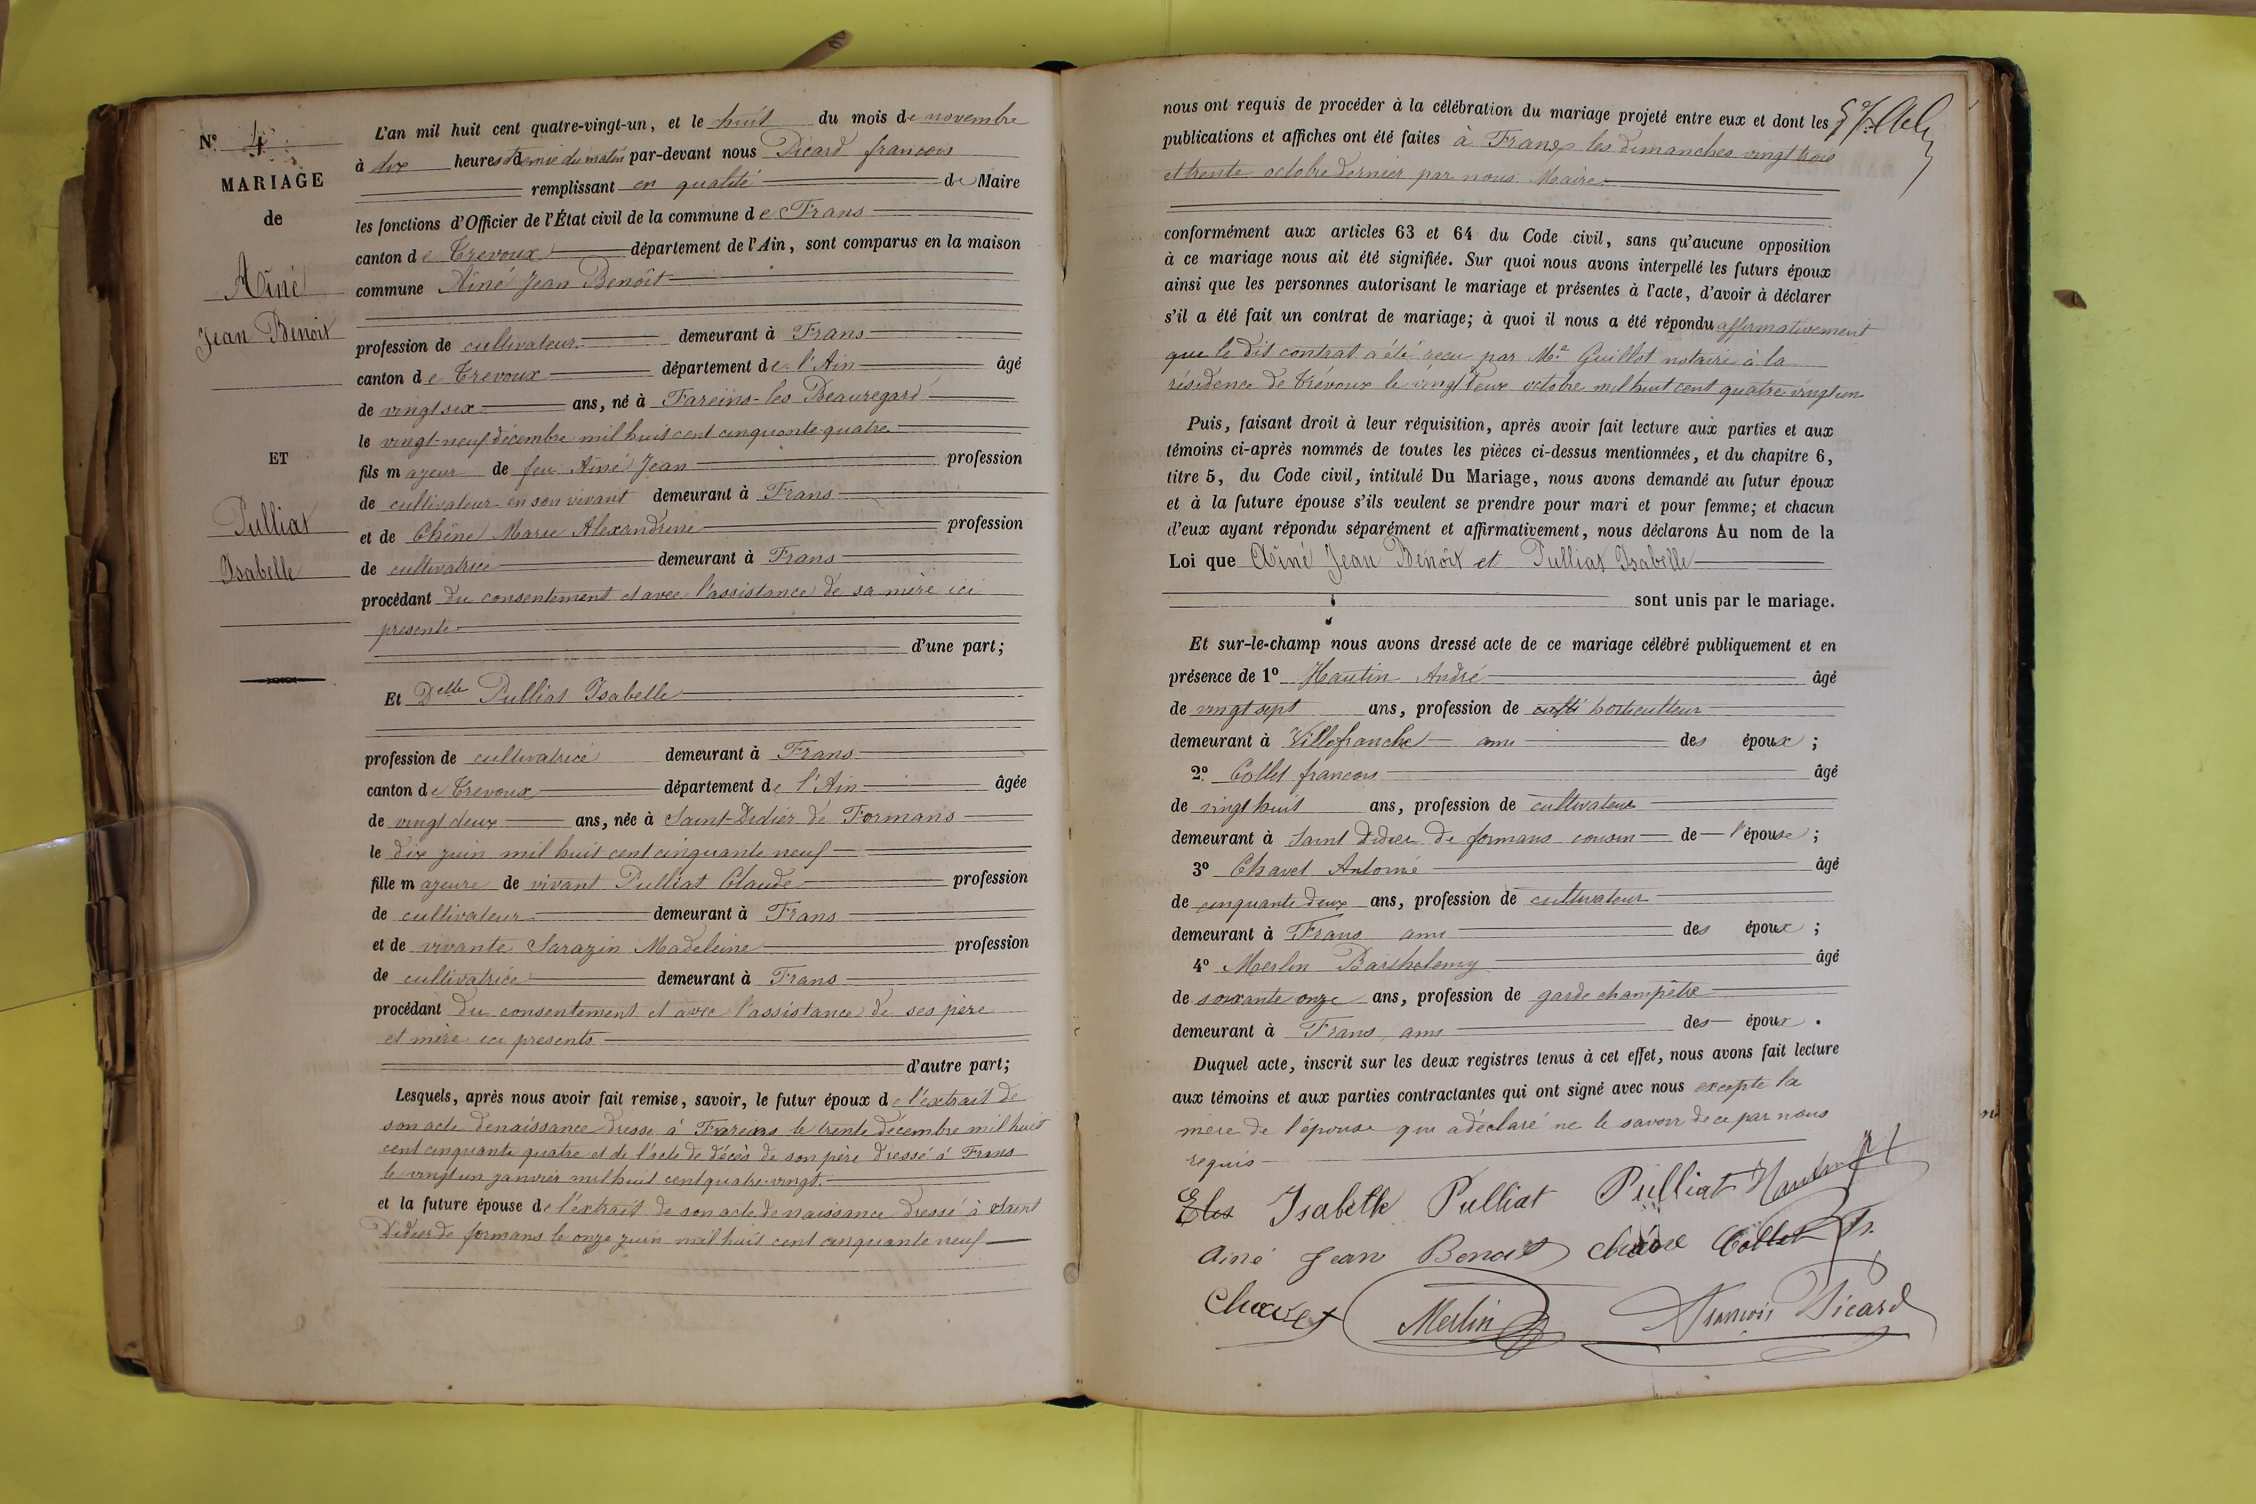 N.º 4
MARIAGE
de
Aîné
Jean Benoit
ET
Pulliat
Isabelle
L'an mil huit cent quatre-vingt-un, et le huit du mois de novembre
à dix heures et demie du matin par-devant nous Picard françois
remplissant en qualité de Maire
les fonctions d'Officier de l'État civil de la commune de Frans
canton de Trevoux département de l'Ain, sont comparus en la maison
commune Aîné Jean Benoît
profession de cultivateur demeurant à Frans
canton de Trevoux département de l'Ain âgé
de vingt six ans, né à Fareins-les Beauregard
le vingt-neuf décembre mil huit cent cinquante quatre
fils majeur de feu Aîné Jean profession
de cultivateur en son vivant demeurant à Frans
et de Chêne Marie Alexandrine profession
de cultivatrice demeurant à Frans
procédant du consentement et avec l'assistance de sa mère ici
presente
d'une part;
Et Delle Pulliat Isabelle
profession de cultivatrice demeurant à Frans
canton de Trevoux département de l'Ain âgée
de vingt deux ans, née à Saint-Didier de Formans
le dix juin mil huit cent cinquante neuf
fille majeure de vivant Pulliat Claude profession
de cultivateur demeurant à Frans
et de vivante Sarazin Madeleine profession
de cultivatrice demeurant à Frans
procédant du consentement et avec l'assistance de ses père
et mère ici presents
d'autre part;
Lesquels, après nous avoir fait remise, savoir, le futur époux de l'extrait de
son acte de naissance dressé à Fareins le trente décembre mil huit
cent cinquante quatre et de l'acte de décès de son père dressé à Frans
le vingt un janvier mil huit cent quatre-vingt.
et la future épouse de l'extrait de son acte de naissance dressé à Saint
Didier de formans le onze juin mil huit cent cinquante neuf
nous ont requis de procéder à la célébration du mariage projeté entre eux et dont les
publications et affiches ont été faites à Frans les dimanches vingt trois
et trente octobre dernier par nous Maire
conformément aux articles 63 et 64 du Code civil, sans qu'aucune opposition
à ce mariage nous ait été signifiée. Sur quoi nous avons interpellé les futurs époux
ainsi que les personnes autorisant le mariage et présentes à l'acte, d'avoir à déclarer
s'il a été fait un contrat de mariage; à quoi il nous a été répondu affirmativement
que le dit contrat a été reçu par Me Guillot notaire à la
résidence de Trévoux le vingt deux octobre mil huit cent quatre vingt un
Puis, faisant droit à leur réquisition, après avoir fait lecture aux parties et aux
témoins ci-après nommés de toutes les pièces ci-dessus mentionnées, et du chapitre 6,
titre 5, du Code civil, intitulé Du Mariage, nous avons demandé au futur époux
et à la future épouse s'ils veulent se prendre pour mari et pour femme; et chacun
d'eux ayant répondu séparément et affirmativement, nous déclarons Au nom de la
Loi que Aîné Jean Benoît et Pulliat Isabelle
sont unis par le mariage.
Et sur-le-champ nous avons dressé acte de ce mariage célébré publiquement et en
présence de 1º Hautin André âgé
de vingt sept ans, profession de culti horticulteur
demeurant à Villefranche ami des époux;
2º Collet francois âgé
de vingt huit ans, profession de cultivateur
demeurant à Saint Didier de formans cousin de l'épouse;
3º Chavet Antoine âgé
de cinquante deux ans, profession de cultivateur
demeurant à Frans ami des époux;
4º Merlin Barthelemy âgé
de soixante onze ans, profession de garde champêtre
demeurant à Frans, ami des époux.
Duquel acte, inscrit sur les deux registres tenus à cet effet, nous avons fait lecture
aux témoins et aux parties contractantes qui ont signé avec nous excepté la
mère de l'épouse qui a déclaré ne le savoir de ce par nous
requis
Isabelle Pulliat Pulliat Hautin
Ainé Jean Benoit Chêne Collet Fr.
Chavet Merlin François Picard